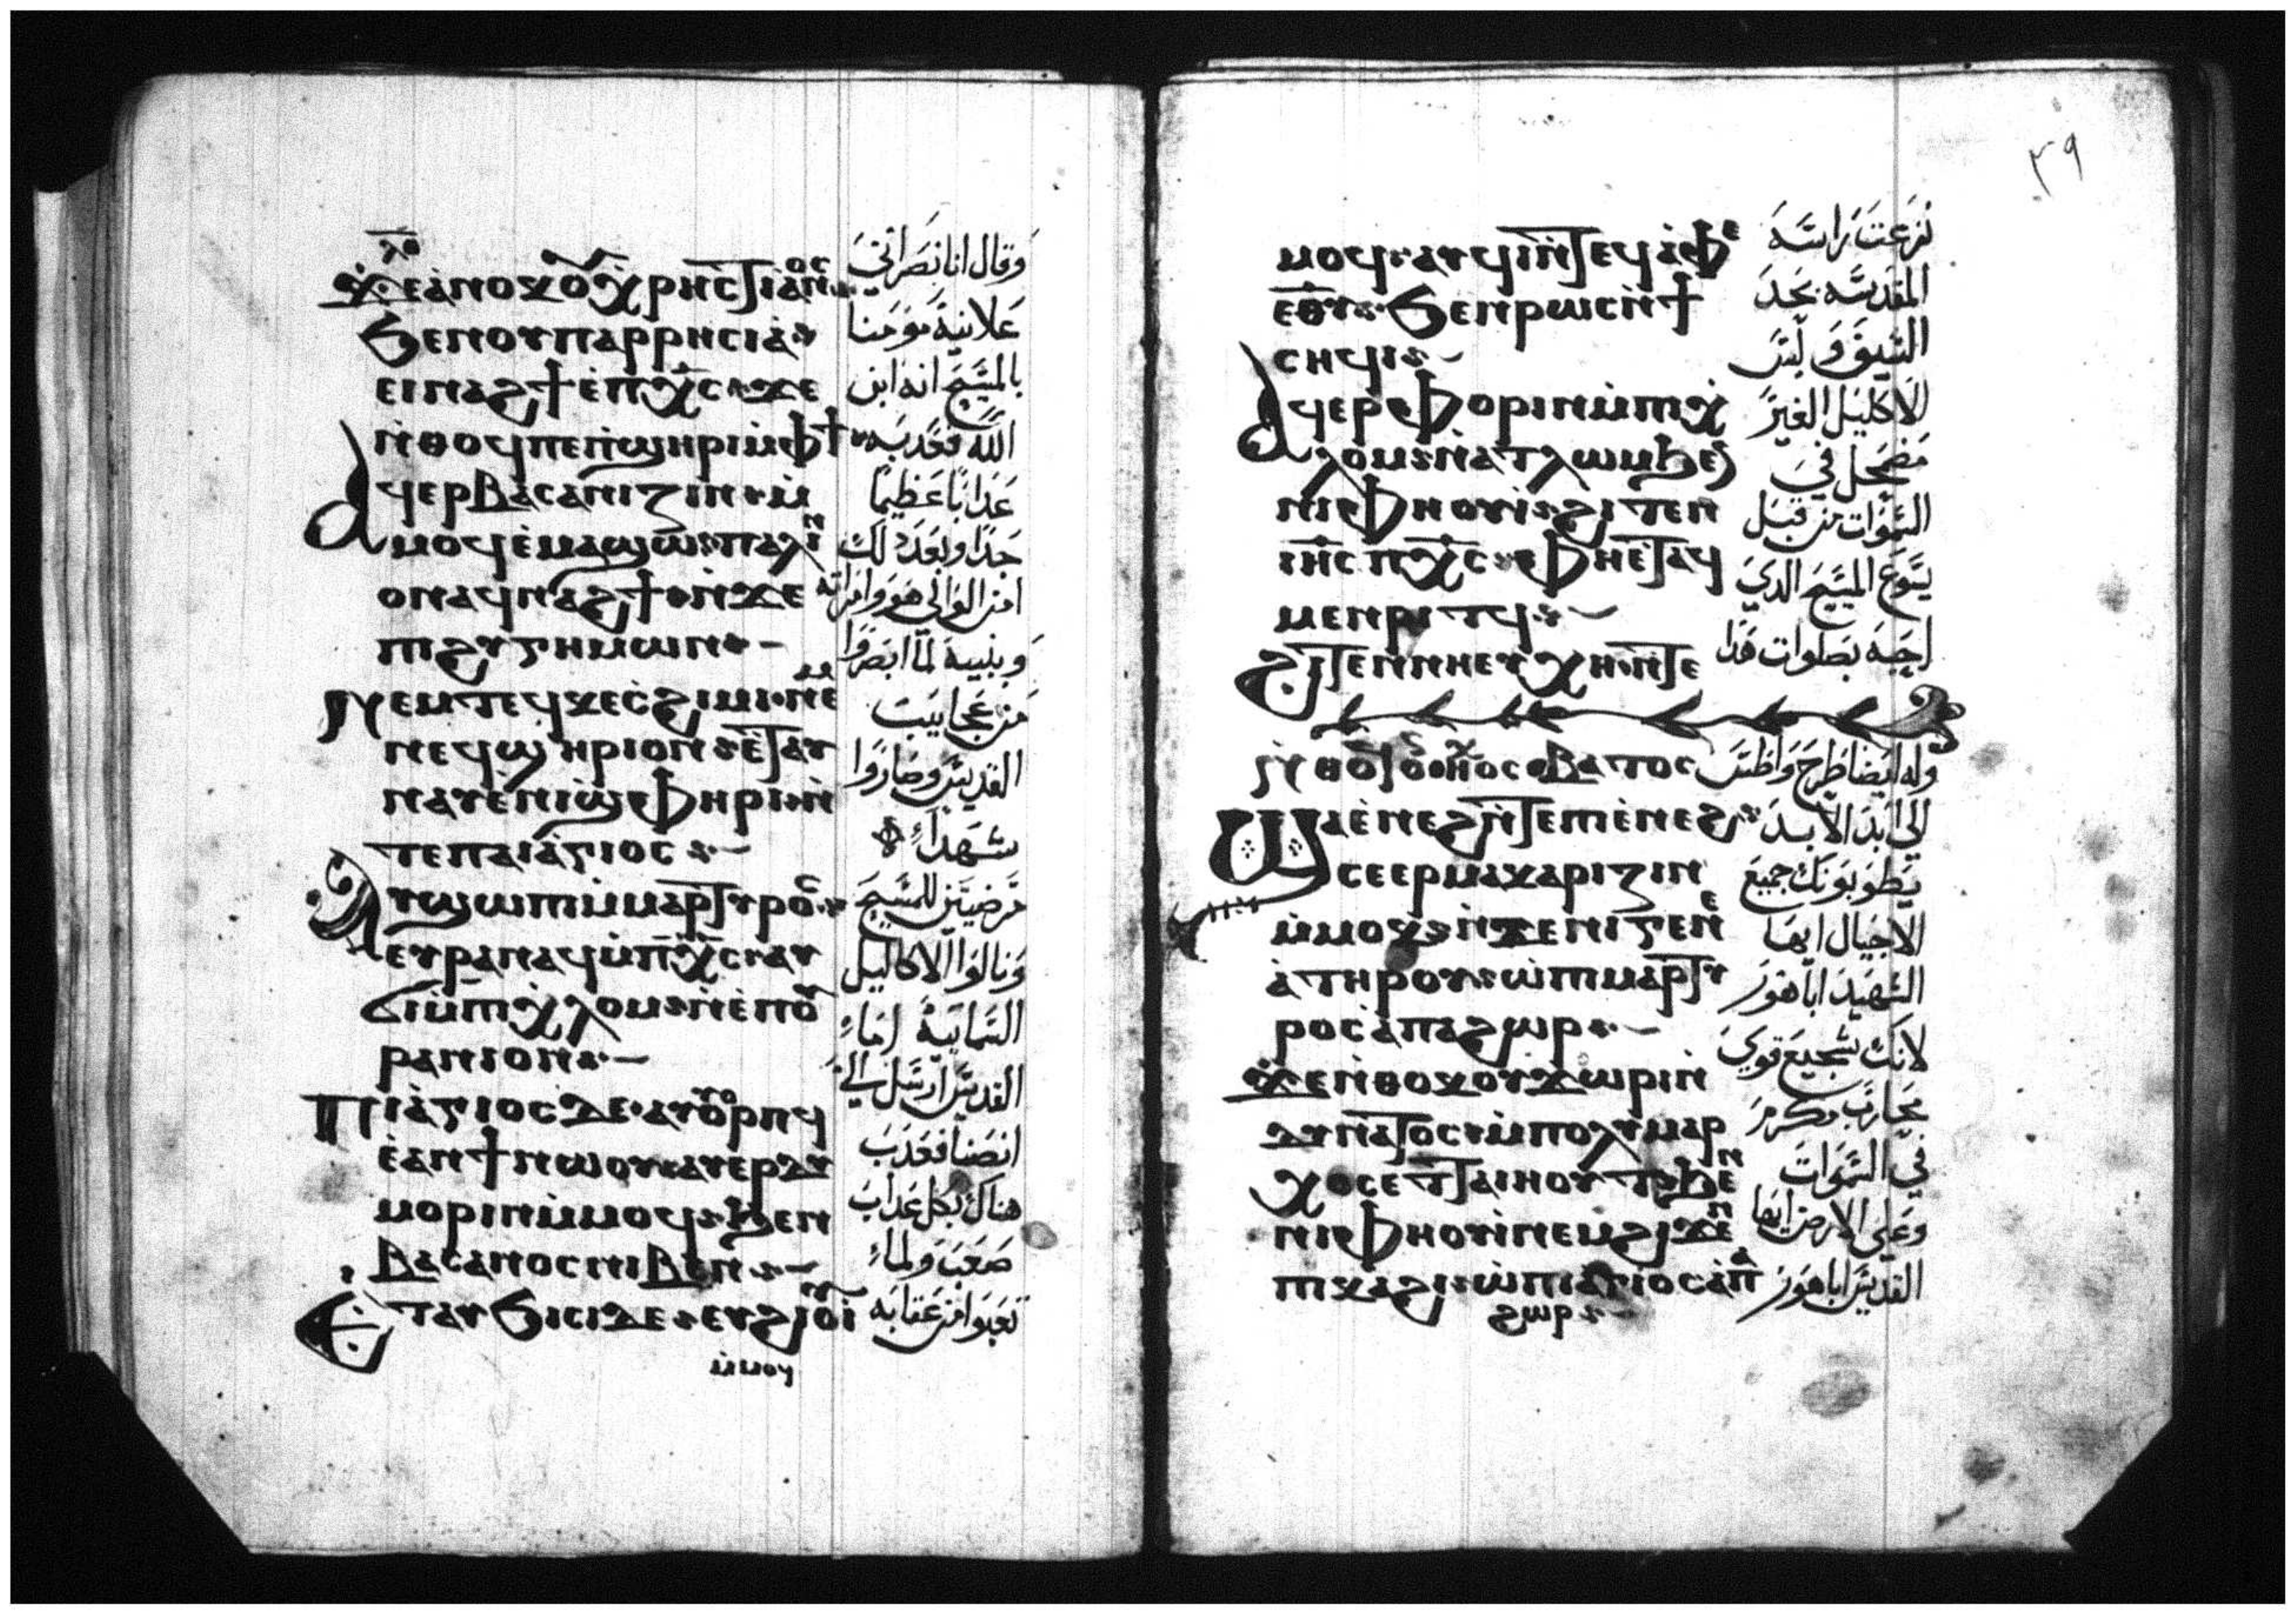 ϫⲉⲁⲛⲟⲕⲟⲩⲭⲣⲏⲥϯⲁⲛⲟⲥ
ϧⲉⲛⲟⲩⲡⲁⲣⲣⲏⲥⲓⲁ
ⲉⲓⲛⲁϩϯⲉⲡⲭⲥ ϫⲉ
ⲛⲑⲟϥⲡⲉⲡϣⲏⲣⲓⲙⲫϯ
ⲁϥⲉⲣⲃⲁⲥⲁⲛⲓⲍⲓⲛ ⲙ
ⲙⲟϥⲉⲙⲁϣⲱ ⲡⲁⲗⲓⲛ
ⲟⲛⲁϥⲛⲁϩϯ ⲛϫⲉ
ⲡⲓϩⲩⲅⲏⲙⲱⲛ
ⲛⲉⲙⲧⲉϥⲕⲉⲥϩⲓⲙⲓ ⲛⲉⲙ
ⲛⲉϥϣⲏⲣⲓⲟⲛ ⲉⲧⲁⲩ
ⲛⲁⲩⲉⲛⲓϣⲫⲏⲣⲓ ⲛ
ⲧⲉⲡⲁⲓⲁⲅⲓⲟⲥ
ⲁⲩϣⲱⲡⲓⲙⲙⲁⲣⲧⲩⲣⲟⲥ
ⲉⲩⲣⲁⲛⲁϥⲙⲡⲭⲥ ⲁⲩ
ϭⲓⲙⲡⲓⲭⲗⲟⲙ ⲛⲉⲡⲟⲩ
ⲣⲁⲛⲓⲟⲛ
ⲡⲓⲁⲅⲓⲟⲥⲇⲉ ⲁⲩⲟⲩⲟⲣⲡϥ
ⲉⲁⲛϯⲛⲱⲟⲩ ⲁⲩⲉⲣⲇⲩ
ⲙⲟⲣⲓⲛⲙⲙⲟϥ ϧⲉⲛ
ⲃⲁⲥⲁⲛⲟⲥⲛⲓⲃⲉⲛ
ⲉⲧⲁⲩϧⲓⲥⲓⲇⲉ ⲉⲩϩⲓⲟⲩⲓ
ⲙⲙⲟϥ
وقال انا نصراني
علانية مومنا
بالمسيح انه ابن
الله فعدبه
عدابا عظيما
جدا وبعد دلك
امن الوالي هو وامراته
وبنيه لما ابصروا
من عجايب
القديس وصاروا
شهداء
مرضيين للمسيح
ونالوا الاكاليل
السماييه اما
القديس ارسل الي
انصنا فعدب
هناك بكل عداب
صعب ولما
تعبوا من عقابه
٣٩
ⲙⲟϥ ⲁⲩϥⲓⲛⲧⲉϥⲁⲫⲉ
ⲉⲑⲩ ϧⲉⲛⲣⲱⲥⲛϯ
ⲥⲏϥⲓ
ⲁϥⲉⲣⲫⲟⲣⲓⲛⲙⲡⲓⲭ
ⲗⲟⲙ ⲛⲁⲧⲗⲱⲙϧⲉⲛ
ⲛⲓⲫⲏⲟⲩⲓ ϩⲓⲧⲉⲛ
ⲓⲏⲥ ⲡⲭⲥ ⲫⲏⲉⲧⲁϥ
ⲙⲉⲛⲣⲓⲧϥ
ϩⲓⲧⲉⲛⲛⲓⲉⲩⲭⲏ ⲛⲧⲉ
ⲃⲁⲧⲟⲥ
ϣⲁⲉⲛⲉϩⲛⲧⲉⲡⲓⲉⲛⲉϩ
ⲥⲉⲉⲣⲙⲁⲕⲁⲣⲓⲍⲓⲛ
ⲙⲙⲟⲕ ⲛϫⲉⲛⲓⲅⲉⲛⲉ
ⲁⲧⲏⲣⲟⲩ ⲱⲡⲓⲙⲁⲣⲧⲩ
ⲣⲟⲥⲁⲡⲁϩⲱⲣ
ϫⲉⲛⲑⲟⲕⲟⲩϫⲱⲣⲓⲛ
ⲇⲩⲛⲁⲧⲟⲥ ⲙⲡⲟⲗⲩⲙⲁⲣ
ⲭⲟⲥⲉⲧⲧⲁⲓⲏⲟⲩⲧ ϧⲉⲛ
ⲛⲓⲫⲏⲟⲩⲓⲛⲉⲙϩⲓϫⲉⲛ
ⲡⲓⲕⲁϩⲓ ⲱⲡⲓⲁⲅⲓⲟⲥⲁⲡⲁ
ϩⲱⲣ
نزعت راسه
المقدسه بحد
السيف ولبس
الاكليل الغير
مضمحل في
السموات من قبل
يسوع المسيح الدي
احبه بصلوات هدا
وله ايضا طرح واطس
الي ابد الابد
يطوبونك جميع
الاجيال ايها
الشهيد ابا هور
لانك شجيع قوي
محارب مكرم
في السموات
وعلي الارض ايها
القديس ابا هور